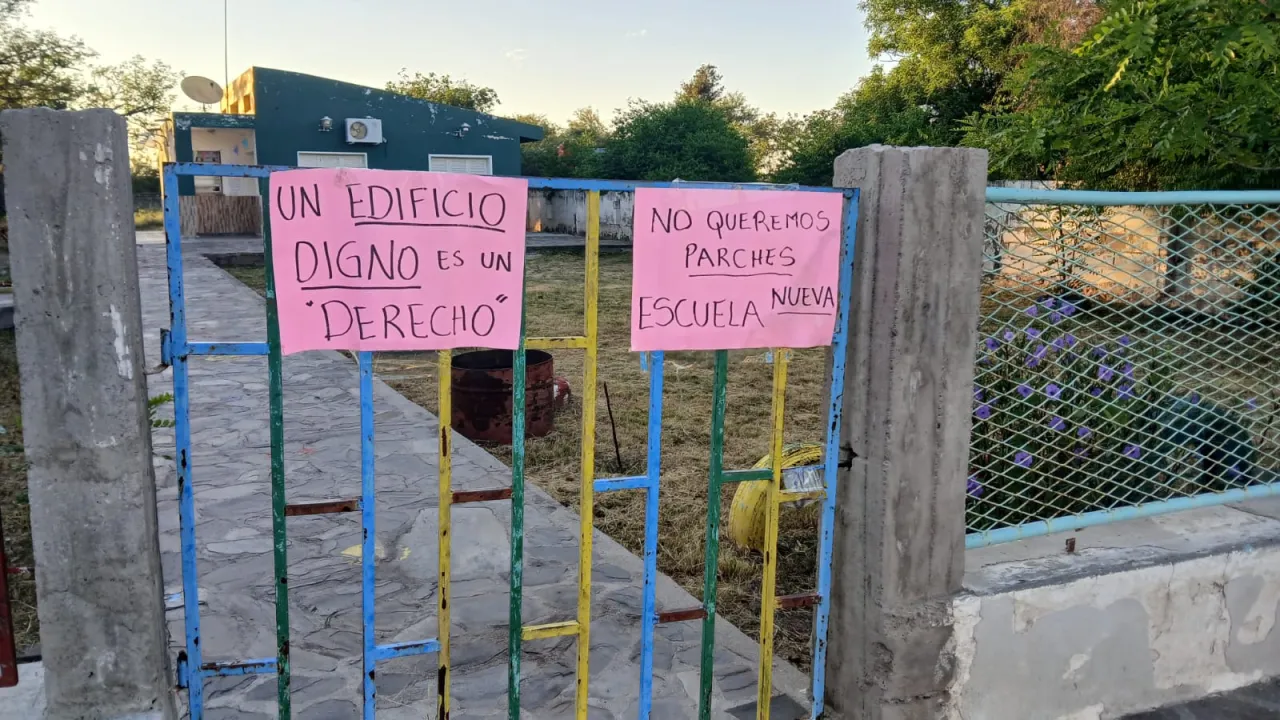 UN EDIFICIO
DIGNO ES UN
"DERECHO"
NO QUEREMOS
PARCHES
ESCUELA NUEVA